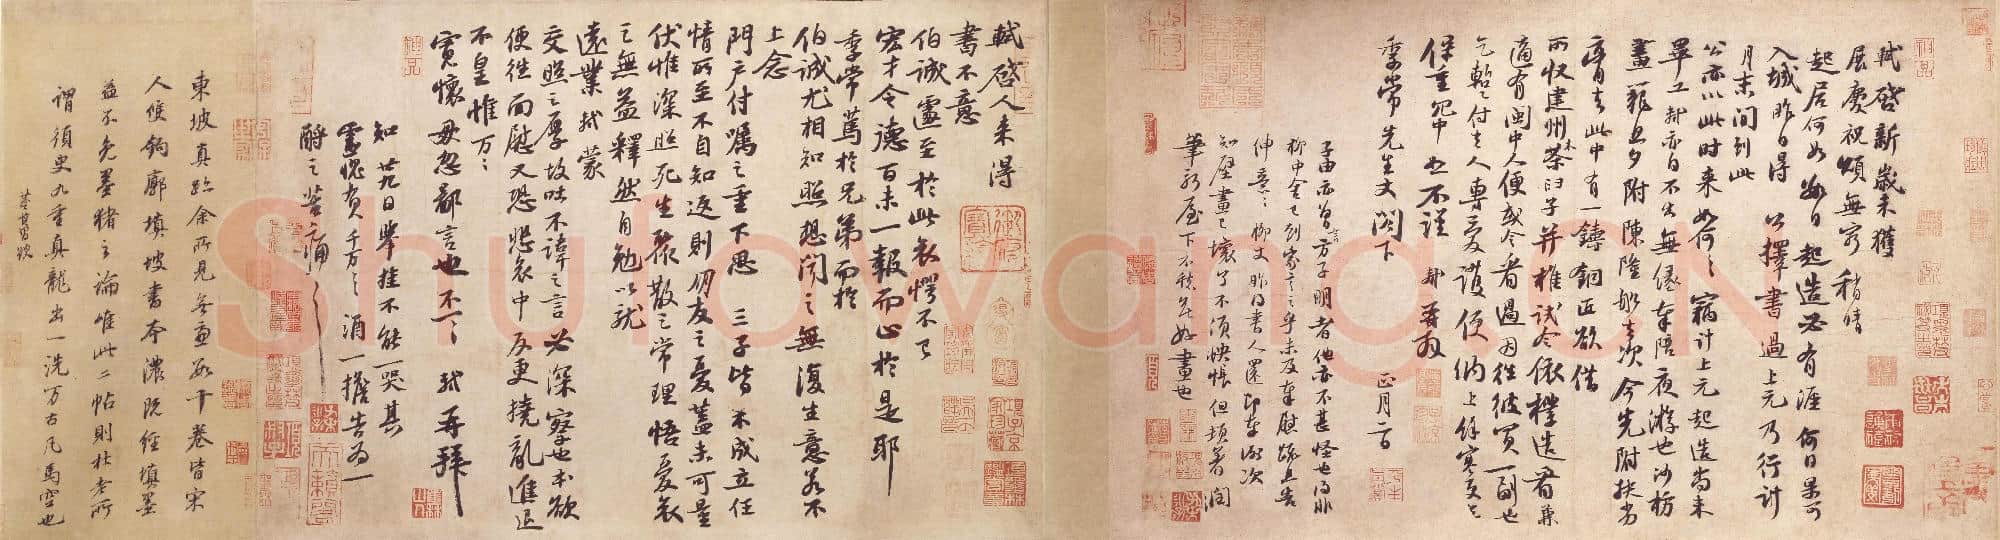 軾啓新歲未獲
展慶祝頌無窮稍晴
起居何如數日起造必有涯何日果可
入城昨日得公擇書過上元乃行計
月末間到此
公亦以此時來如何々竊計上元起造尚未
畢工軾亦自不出無緣奉陪夜遊也沙枋
畫籠旦夕附陳隆船去次今先附扶劣
膏去此中有一鑄銅匠欲借
所收建州木茶臼子并椎試令依樣造看兼
適有閩中人便或令看過因往彼買一副也
乞暫付去人專愛護便納上餘寒更乞
保重冗中恕不謹軾再拜
季常先生丈閣下正月二日
子由亦曾言方子明者他亦不甚怪也得非
柳中舍已到家言之乎未及奉慰疏且告
伸意々柳丈昨得書人還即奉謝次
知壁畫已壞了不須怏悵但頓著潤
筆新屋下不愁無好畫也
軾啓人來得
書不意
伯誠遽至於此哀愕不已
宏才令德百未一報而止於是耶
季常篤於兄弟而於
伯誠尤相知照想聞之無復生意若不
上念
門戶付囑之重下思三子皆未成立任
情所至不自知返則朋友之憂蓋未可量
伏惟深照死生聚散之常理悟憂哀
之無益釋然自勉以就
遠業軾蒙
交照之厚故吐不諱之言必深察也本欲
便往面慰又恐悲哀中反更撓亂進退
不皇惟万々
寬懷毋忽鄙言也不一々軾再拜
知廿九日舉掛不能一哭其
靈愧負千万々酒一擔告為一
酹之苦痛々
東坡真跡余所見無慮數十卷皆宋
人雙鉤廓填坡書本濃既經填墨
益不免墨豬之論唯此二帖則杜老所
謂須臾九重真龍出一洗万古凡馬空也
董其昌跋
Shufawang.CN